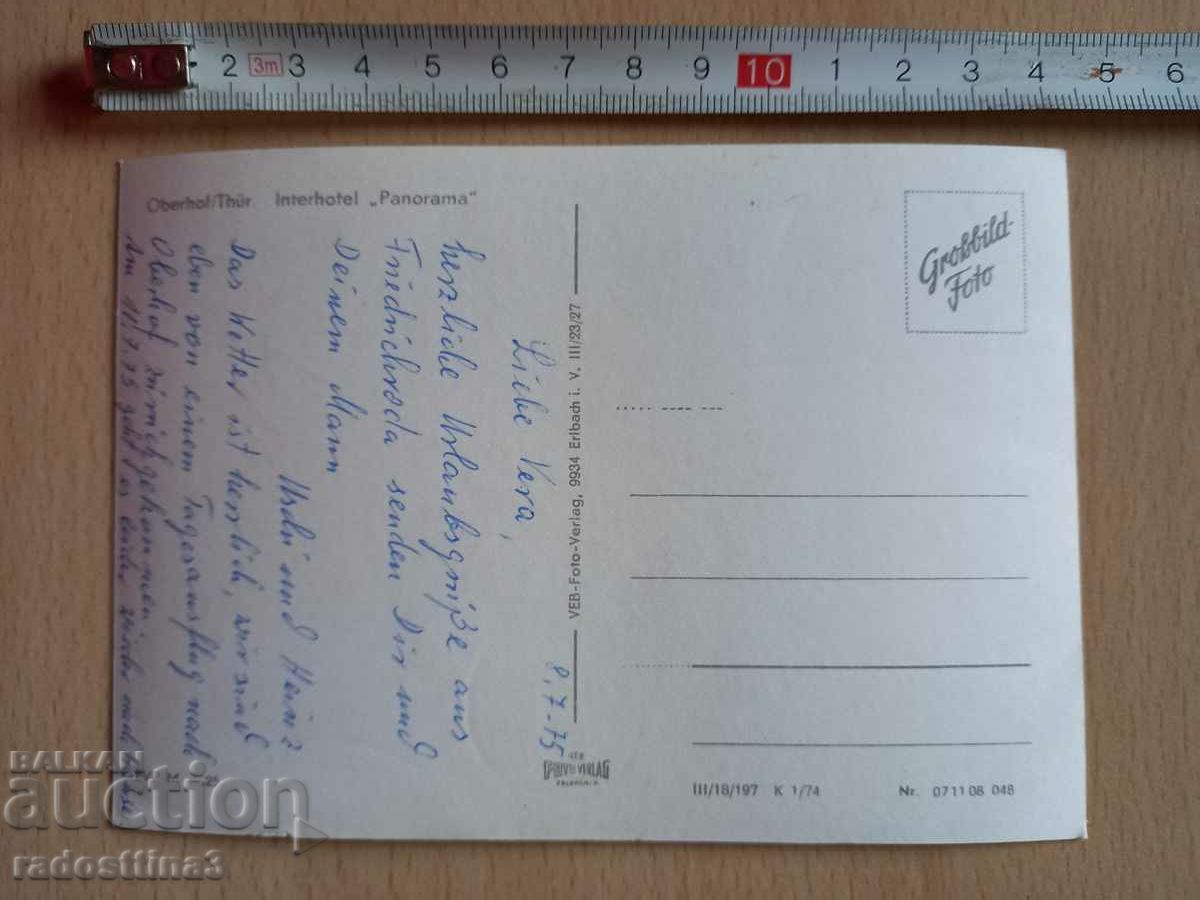 2 3m 3 4 5 6 7 8 9 10 1 2 3 4 5 6
Oberhof/Thür. Interhotel „Panorama"
Großbild-
Foto
8.7.75
Liebe Vera,
herzliche Urlaubsgrüße aus
Friedrichroda senden Dir und
Deinem Mann
und Heinz
Das Wetter ist herrlich, wir sind
eben von einem Tagesausflug nach
Oberhof zurückgekommen.
Am 7.75 geht es leider wieder nach Hause
VEB-Foto-Verlag, 9934 Erlbach i. V. III/23/27
VERLAG
III/18/197 K 1/74 Nr. 07 11 08 048
BALKAN
auction
radosttina3